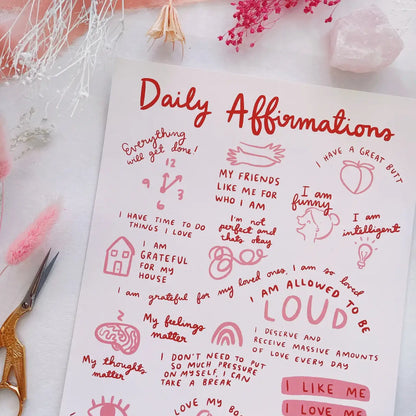 Daily Affirmations
Everything
will get done!
12
3
6
9
MY FRIENDS
LIKE ME FOR
WHO I AM
I HAVE A GREAT BUTT
I am
funny
I HAVE TIME TO DO
THINGS I LOVE
I'm not
perfect and
thats okay
I am
intelligent
I AM
GRATEFUL
FOR MY
HOUSE
I am grateful for my loved ones, I am so loved
I AM ALLOWED TO BE
LOUD
My feelings
matter
I DESERVE AND
RECEIVE MASSIVE AMOUNTS
OF LOVE EVERY DAY
My thoughts
matter
I DON'T NEED TO PUT
SO MUCH PRESSURE
ON MYSELF, I CAN
TAKE A BREAK
I LIKE ME
I LIKE ME
LOVE MY BO